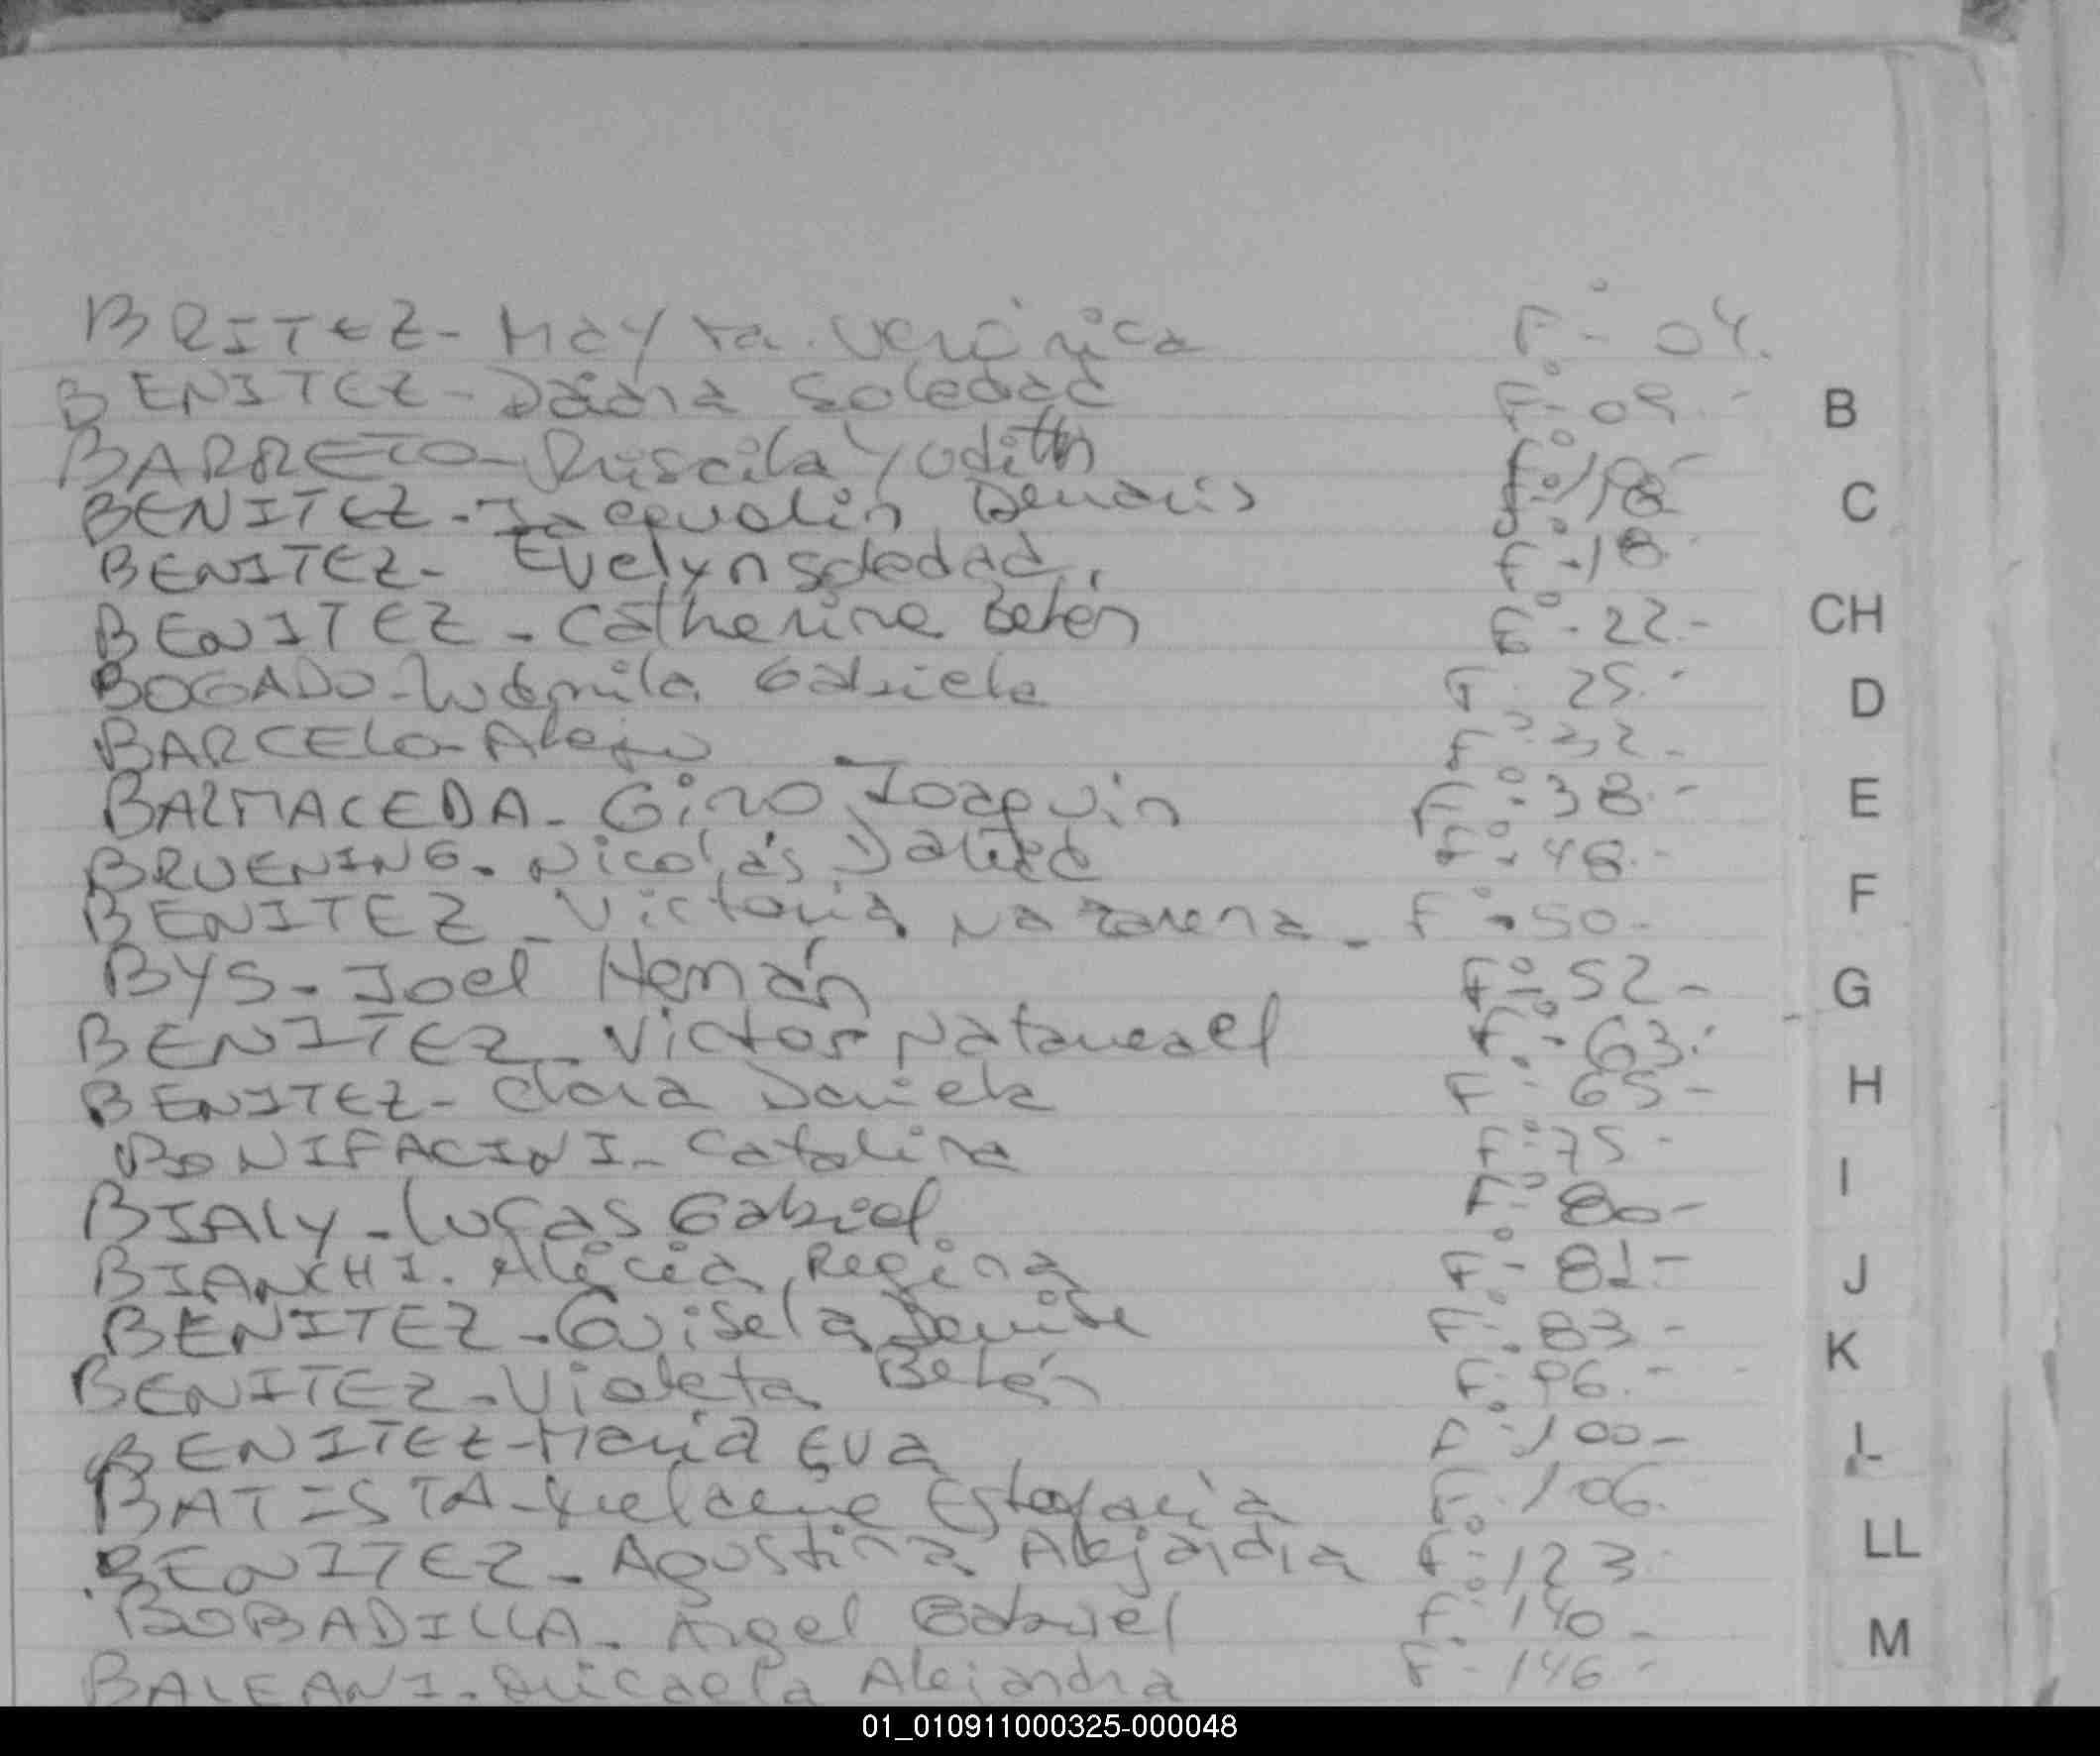 BRITEZ - Mayra Verónica F° - 04.
BENITEZ - Daiana Soledad F° - 09.-
BARRETO - Priscila Yudith F° - 18 -
BENITEZ - Jacquolin Damaris F° - 18
BENITEZ - Evelyn Soledad. F° - 18.
BENITEZ - Catherine Belén F° - 22.-
BOGADO - Ludmila Gabriela F° 25.-
BARCELO - Alejo F° 32.-
BALMACEDA - Gino Joaquin F° - 38.-
BRUENING - Nicolás F° - 48.-
BENITEZ - Victoria Nazarena - F° - 50.-
BYS - Joel Hernán F° - 52 -
BENITEZ - Victor Natanael F° - 63.-
BENITEZ - Clara Daniela F° - 65 -
BONIFACINI - Catalina F° - 75 -
BIALY - Lucas Gabriel F° - 80 -
BIANCHI - Alicia Regina F° - 81 -
BENITEZ - Guisela Denise F° - 83 -
BENITEZ - Violeta Belén F° 96.-
BENITEZ - Maria Eva F° - 100 -
BATISTA - Estefania F° 106.
BENITEZ - Agustina Alejandra F° - 123.
BOBADILLA - Angel Gabriel F° - 140 -
BALEANI - Micaela Alejandra F° - 146.-
B
C
CH
D
E
F
G
H
I
J
K
L
LL
M
01_010911000325-000048